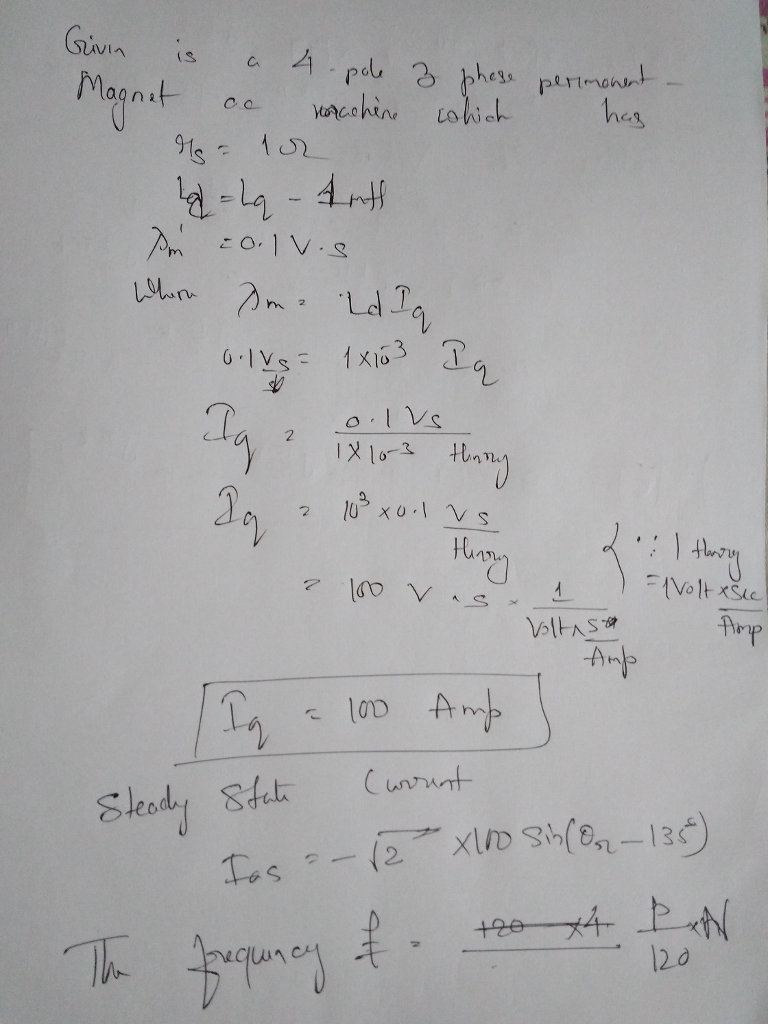 Givin is a 4-pole 3 phase perimanent-
Magnet ac machine which has
rs = 1Ω
Ld = Lq - 1mH
λm' = 0.1 V.s
When λm = Ld Iq
0.1 Vs = 1×10⁻³ Iq
Iq = 0.1 Vs / 1×10⁻³ Henry
Iq = 10³ × 0.1 Vs / Henry
= 100 V.s × 1 / Volt × S / Amp { ∵ 1 Henry = 1Volt × Sec / Amp
Iq = 100 Amp
Steady State Current
Ias = -√2 × 100 Sin(θr - 135°)
The frequency f = P × N / 120